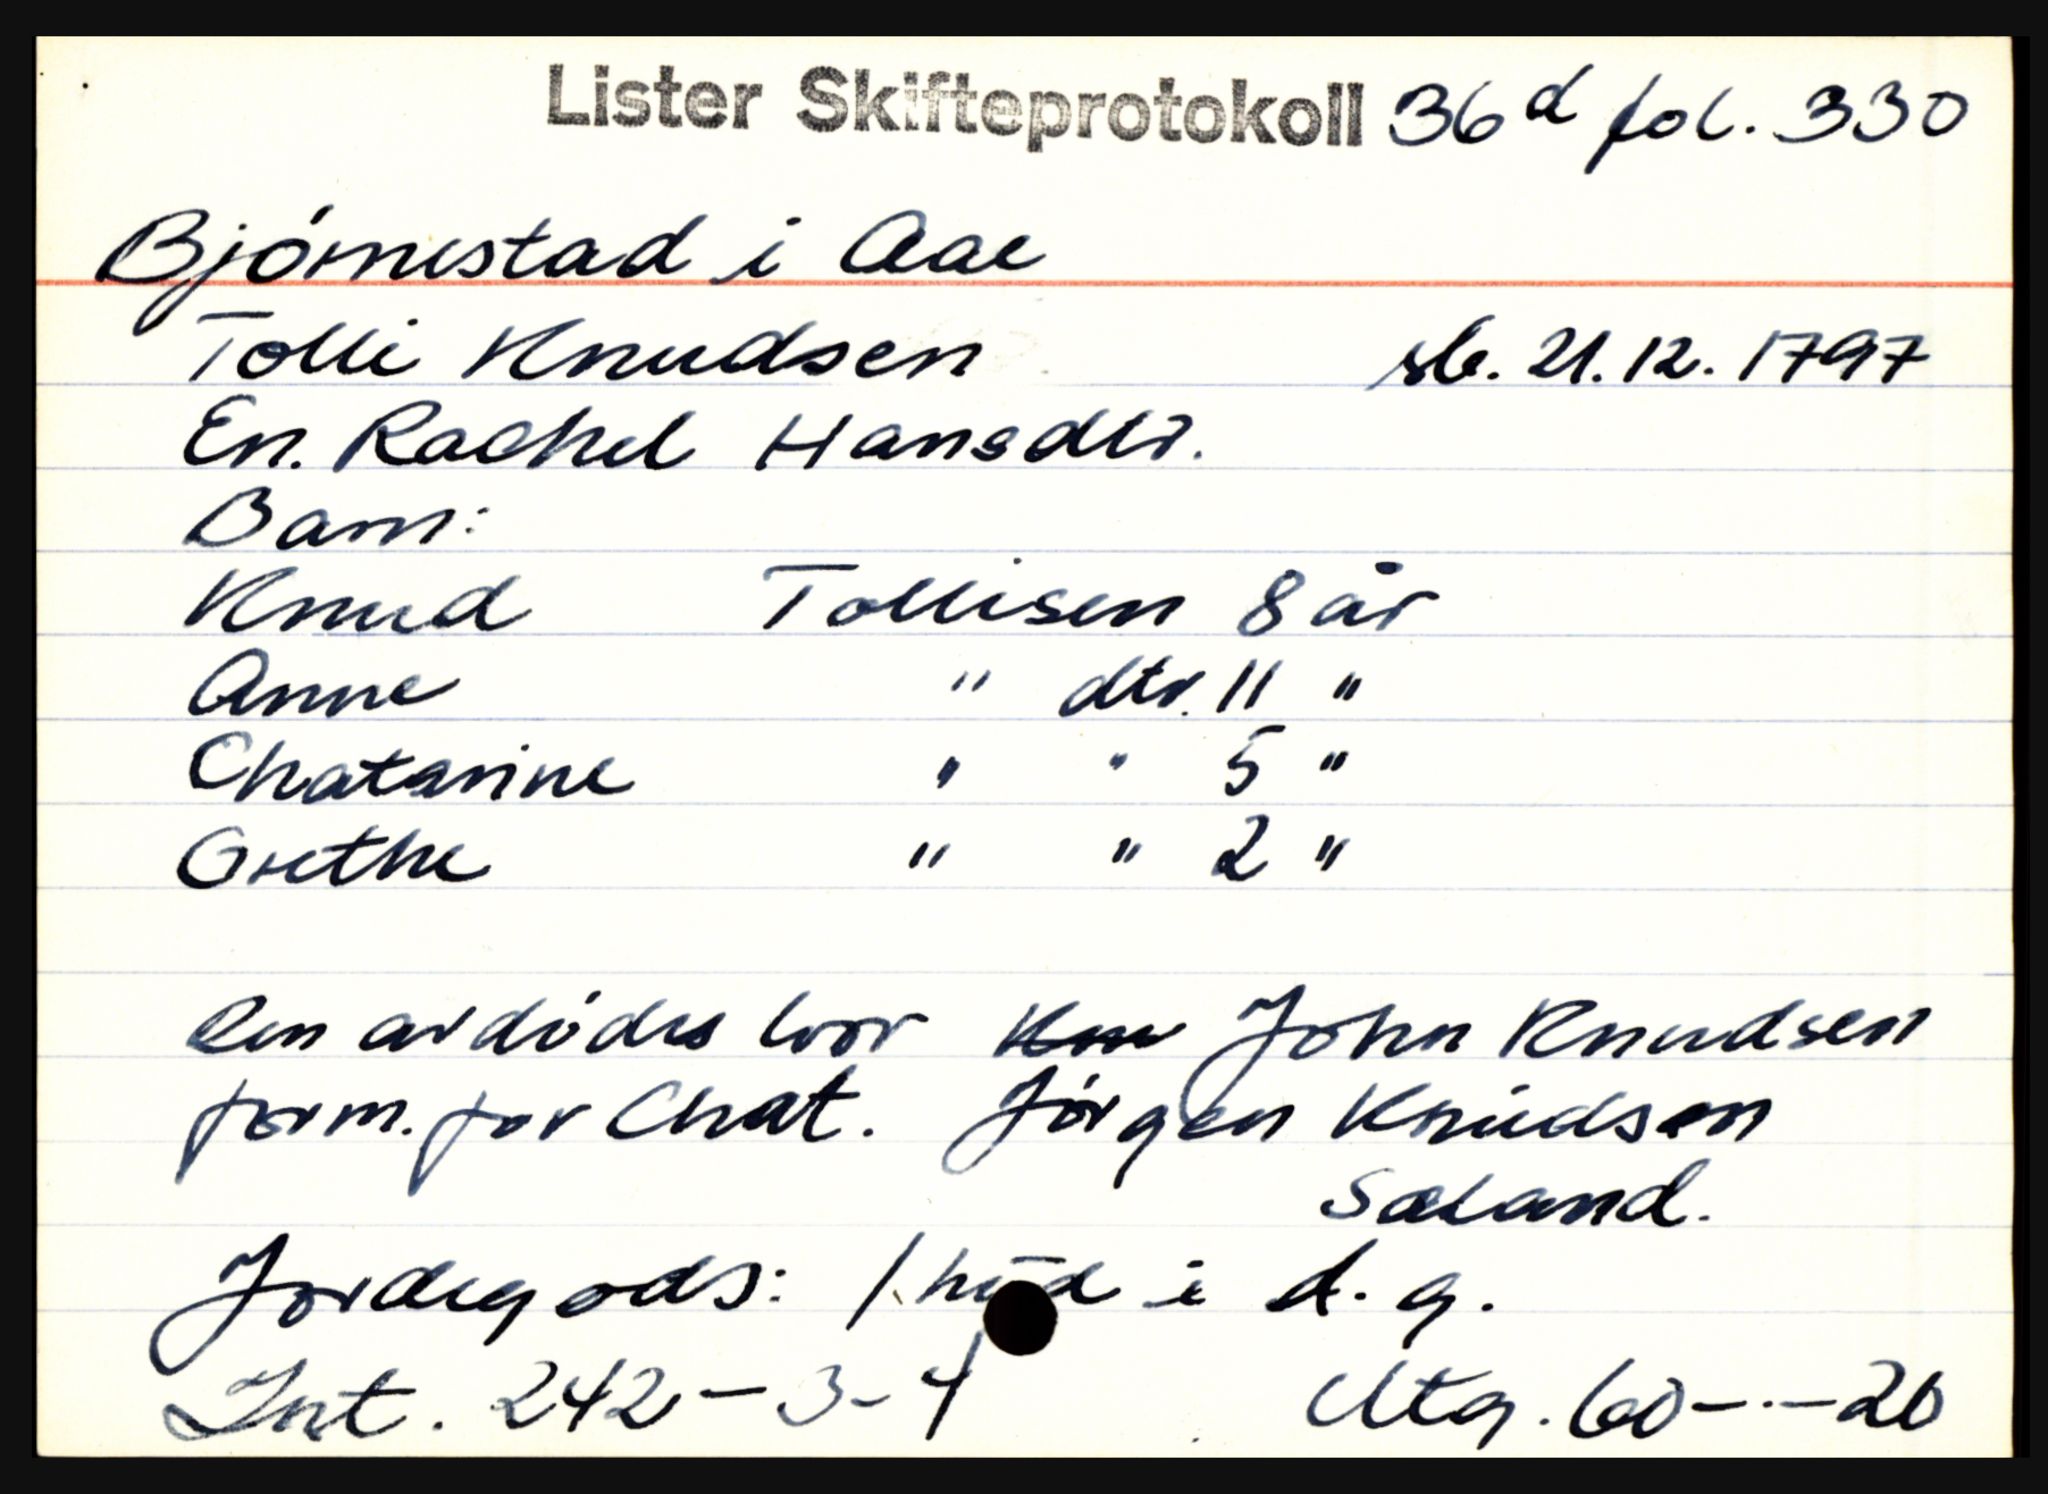 Lister Skifteprotokoll 36d fol. 330
Bjørnestad i Aae
Tolli Knudsen sb. 21.12.1797
En. Rachel Hansdtr.
Barn:
Knud Tollisen 8 år
Anne " dtr. 11 "
Chatarine " " 5 "
Grethe " " 2 "
Den avdødes bror John Knudsen
form. for Chat. Jørgen Knudsen
Sæland.
Jordegods: 1 hud i d. g.
Int. 242 - 3 - 4 Utg. 60 - . - 20